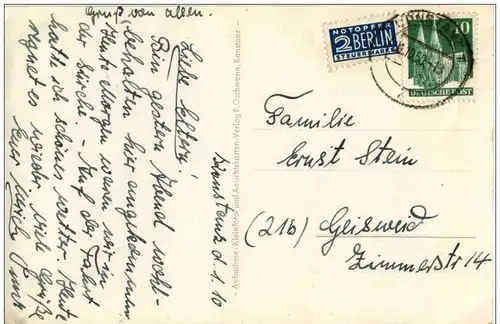 Gruß von allen.
Konstanz d. 1. 10
Liebe Eltern!
Bin gestern Abend wohl-
behalten hier angekommen
Heute Morgen waren wir in
der Kirche - Auf der Fahrt
hatte ich schönes Wetter Heute
regnet es wieder. Viele Grüße
Eure
NOTOPFER
2 BERLIN
STEUERMARKE
10
DEUTSCHE POST
- Aufnahme: Kleinfoto- und Ansichtskarten-Verlag R. Oschmann, Konstanz -
Familie
Ernst Stein
(21b) Geisweid
Zimmerstr 14